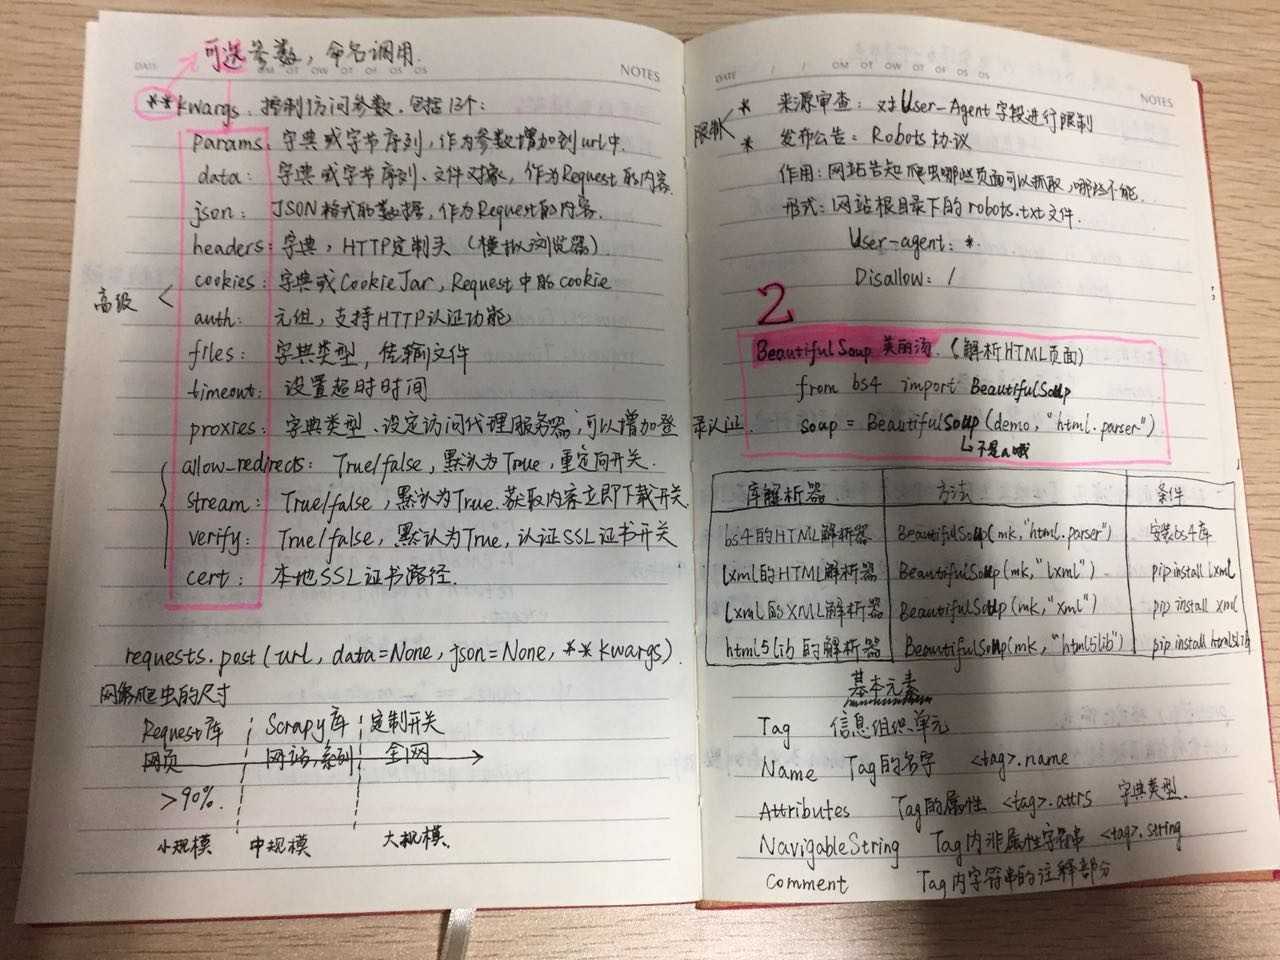 可选参数，命名调用.
DATE OM OT OW OT OF OS OS NOTES
**kwargs：控制访问参数.包括13个：
params：字典或字节序列，作为参数增加到url中.
data：字典或字节序列、文件对象，作为Request的内容.
json：JSON格式的数据，作为Request的内容.
headers：字典，HTTP定制头（模拟浏览器）
cookies：字典或CookieJar，Request中的cookie
高级
auth：元组，支持HTTP认证功能
files：字典类型，传输文件
timeout：设置超时时间
proxies：字典类型、设定访问代理服务器，可以增加登录认证.
allow_redirects：True/false，默认为True，重定向开关.
stream：True/false，默认为True.获取内容立即下载开关
verify：True/false，默认为True，认证SSL证书开关
cert：本地SSL证书路径.
requests.post(url, data=None, json=None, **kwargs).
网络爬虫的尺寸
Request库 Scrapy库 定制开关
网页 网站,系列 全网
>90%.
小规模 中规模 大规模.
DATE / / OM OT OW OT OF OS OS NOTES
限制
* 来源审查：对User-Agent字段进行限制
* 发布公告：Robots协议
作用：网站告知爬虫哪些页面可以抓取，哪些不能.
形式：网站根目录下的robots.txt文件.
User-agent：*.
Disallow：/
2
BeautifulSoup 美丽汤.（解析HTML页面）
from bs4 import BeautifulSoup
soup = BeautifulSoup(demo, "html.parser")
不是a哦
库解析器. 方法 条件
bs4的HTML解析器 BeautifulSoup(mk,"html.parser") 安装bs4库
lxml的HTML解析器 BeautifulSoup(mk,"lxml") pip install lxml
lxml的XML解析器 BeautifulSoup(mk,"xml") pip install xml
html5lib的解析器 BeautifulSoup(mk,"html5lib") pip install html5lib
基本元素
Tag 信息组织单元
Name Tag的名字 <tag>.name
Attributes Tag的属性 <tag>.attrs 字典类型.
NavigableString Tag内非属性字符串 <tag>.string
Comment Tag内字符串的注释部分